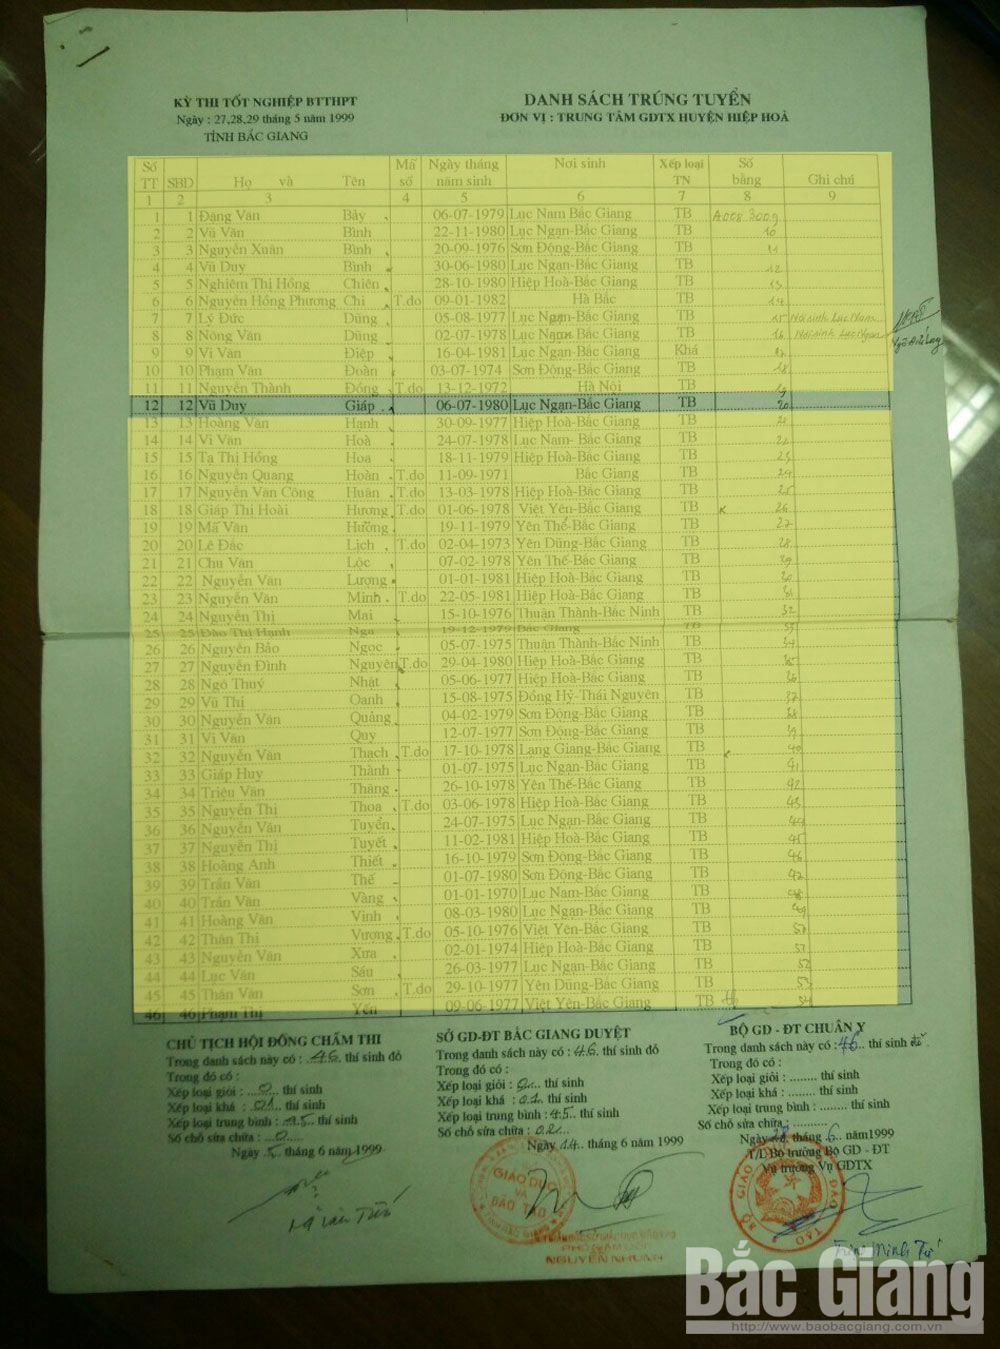 KỲ THI TỐT NGHIỆP BTTHPT
Ngày : 27,28,29 tháng 5 năm 1999
TỈNH BẮC GIANG
DANH SÁCH TRÚNG TUYỂN
ĐƠN VỊ : TRUNG TÂM GDTX HUYỆN HIỆP HOÀ
Số TT SBD Họ và Tên Mã số Ngày tháng năm sinh Nơi sinh Xếp loại TN Số bằng Ghi chú
1 2 3 4 5 6 7 8 9
1 1 Đặng Văn Bảy 06-07-1979 Lục Nam Bắc Giang TB A008 3009
2 2 Vũ Văn Bình 22-11-1980 Lục Ngạn-Bắc Giang TB 10
3 3 Nguyễn Xuân Bình 20-09-1976 Sơn Động-Bắc Giang TB 11
4 4 Vũ Duy Bình 30-06-1980 Lục Ngạn-Bắc Giang TB 12
5 5 Nghiêm Thị Hồng Chiên 28-10-1980 Hiệp Hoà-Bắc Giang TB 13
6 6 Nguyễn Hồng Phương Chi T.do 09-01-1982 Hà Bắc TB 14
7 7 Lý Đức Dũng 05-08-1977 Lục Ngạn-Bắc Giang TB 15 Nơi sinh Lục Nam
8 8 Nông Văn Dũng 02-07-1978 Lục Ngạn-Bắc Giang TB 16 Nơi sinh Lục Ngạn
9 9 Vi Văn Điệp 16-04-1981 Lục Ngạn-Bắc Giang Khá 17
10 10 Phạm Văn Đoàn 03-07-1974 Sơn Động-Bắc Giang TB 18
11 11 Nguyễn Thành Đồng T.do 13-12-1972 Hà Nội TB 19
12 12 Vũ Duy Giáp 06-07-1980 Lục Ngạn-Bắc Giang TB 20
13 13 Hoàng Văn Hạnh 30-09-1977 Hiệp Hoà-Bắc Giang TB 21
14 14 Vi Văn Hoà 24-07-1978 Lục Nam- Bắc Giang TB 22
15 15 Tạ Thị Hồng Hoa 18-11-1979 Hiệp Hoà-Bắc Giang TB 23
16 16 Nguyễn Quang Hoàn T.do 11-09-1971 Bắc Giang TB 24
17 17 Nguyễn Văn Công Huân T.do 13-03-1978 Hiệp Hoà-Bắc Giang TB 25
18 18 Giáp Thị Hoài Hương T.do 01-06-1978 Việt Yên-Bắc Giang TB 26
19 19 Mã Văn Hưởng 19-11-1979 Yên Thế-Bắc Giang TB 27
20 20 Lê Đắc Lịch T.do 02-04-1973 Yên Dũng-Bắc Giang TB 28
21 21 Chu Văn Lộc 07-02-1978 Yên Thế-Bắc Giang TB 29
22 22 Nguyễn Văn Lượng 01-01-1981 Hiệp Hoà-Bắc Giang TB 30
23 23 Nguyễn Văn Minh T.do 22-05-1981 Hiệp Hoà-Bắc Giang TB 31
24 24 Nguyễn Thị Mai 15-10-1976 Thuận Thành-Bắc Ninh TB 32
25 25 Đào Thị Hạnh Nga 19-12-1979 Bắc Giang TB 33
26 26 Nguyễn Bảo Ngọc 05-07-1975 Thuận Thành-Bắc Ninh TB 34
27 27 Nguyễn Đình Nguyên T.do 29-04-1980 Hiệp Hoà-Bắc Giang TB 35
28 28 Ngô Thuý Nhật 05-06-1977 Hiệp Hoà-Bắc Giang TB 36
29 29 Vũ Thị Oanh 15-08-1975 Đồng Hỷ-Thái Nguyên TB 37
30 30 Nguyễn Văn Quảng 04-02-1979 Sơn Động-Bắc Giang TB 38
31 31 Vi Văn Quy 12-07-1977 Sơn Động-Bắc Giang TB 39
32 32 Nguyễn Văn Thạch T.do 17-10-1978 Lạng Giang-Bắc Giang TB 40
33 33 Giáp Huy Thành 01-07-1975 Lục Ngạn-Bắc Giang TB 41
34 34 Triệu Văn Thăng 26-10-1978 Yên Thế-Bắc Giang TB 42
35 35 Nguyễn Thị Thoa T.do 03-06-1978 Hiệp Hoà-Bắc Giang TB 43
36 36 Nguyễn Văn Tuyển 24-07-1975 Lục Ngạn-Bắc Giang TB 44
37 37 Nguyễn Thị Tuyết 11-02-1981 Hiệp Hoà-Bắc Giang TB 45
38 38 Hoàng Anh Thiết 16-10-1979 Sơn Động-Bắc Giang TB 46
39 39 Trần Văn Thế 01-07-1980 Sơn Động-Bắc Giang TB 47
40 40 Trần Văn Vàng 01-01-1970 Lục Nam-Bắc Giang TB 48
41 41 Hoàng Văn Vinh 08-03-1980 Lục Ngạn-Bắc Giang TB 49
42 42 Thân Thị Vượng T.do 05-10-1976 Việt Yên-Bắc Giang TB 50
43 43 Nguyễn Văn Xưa 02-01-1974 Hiệp Hoà-Bắc Giang TB 51
44 44 Lục Văn Sáu 26-03-1977 Lục Ngạn-Bắc Giang TB 52
45 45 Thân Văn Sơn T.do 29-10-1977 Yên Dũng-Bắc Giang TB 53
46 46 Phạm Thị Yến 09-06-1977 Việt Yên-Bắc Giang TB 54
CHỦ TỊCH HỘI ĐỒNG CHẤM THI
Trong danh sách này có : 46 thí sinh đỗ
Trong đó có :
Xếp loại giỏi : 0 thí sinh
Xếp loại khá : 01 thí sinh
Xếp loại trung bình : 45 thí sinh
Số chỗ sửa chữa : 0
Ngày 5 tháng 6 năm 1999
SỞ GD-ĐT BẮC GIANG DUYỆT
Trong danh sách này có : 46 thí sinh đỗ
Trong đó có :
Xếp loại giỏi : 0 thí sinh
Xếp loại khá : 01 thí sinh
Xếp loại trung bình : 45 thí sinh
Số chỗ sửa chữa : 02
Ngày 14 tháng 6 năm 1999
GIÁO DỤC VÀ ĐÀO TẠO
NGUYỄN NHUẬN
BỘ GD - ĐT CHUẨN Y
Trong danh sách này có : 46 thí sinh đỗ.
Trong đó có :
Xếp loại giỏi : ........ thí sinh
Xếp loại khá : ........ thí sinh
Xếp loại trung bình : ........ thí sinh
Số chỗ sửa chữa : ..........
tháng 6 năm 1999
T/L Bộ trưởng Bộ GD - ĐT
Vụ trưởng Vụ GDTX
BỘ GIÁO DỤC VÀ ĐÀO TẠO
Trần Minh Tư
Bắc Giang
http://www.baobacgiang.com.vn